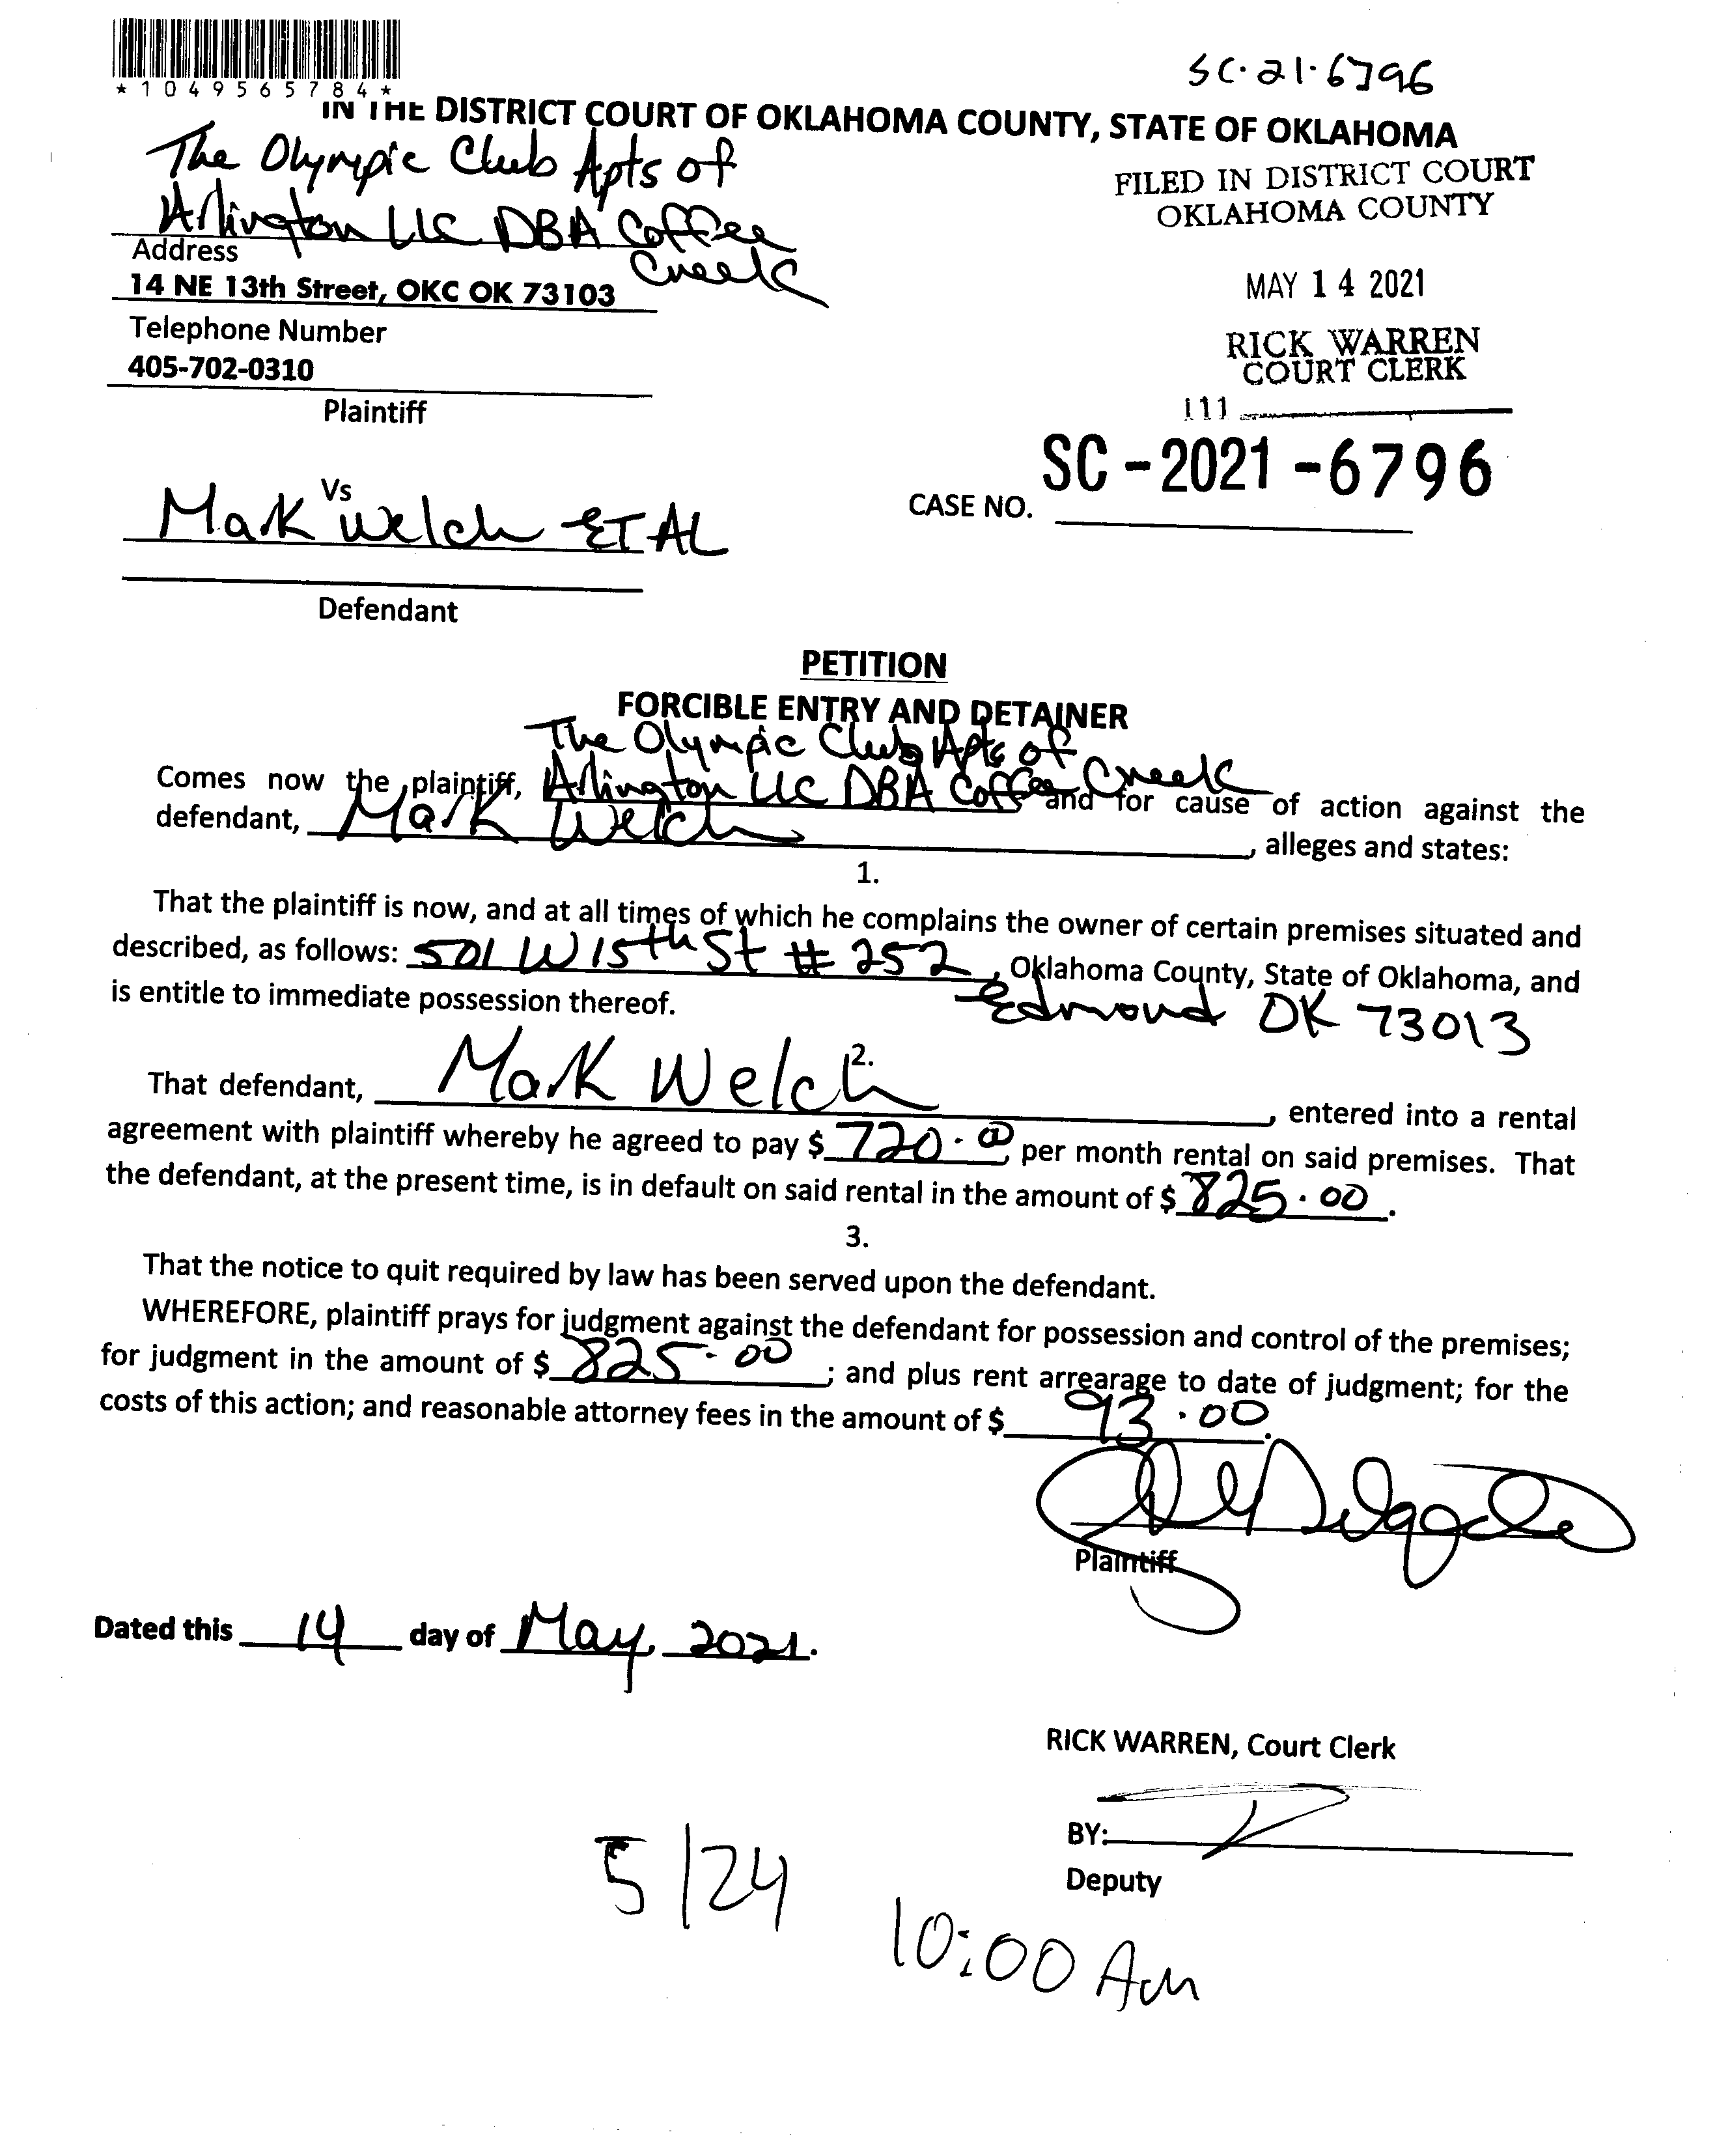 SC·21·6796
*1049565784*
IN THE DISTRICT COURT OF OKLAHOMA COUNTY, STATE OF OKLAHOMA
The Olympic Club Apts of
Arlington LLC DBA Coffee
Creek
Address
14 NE 13th Street, OKC OK 73103
Telephone Number
405-702-0310
Plaintiff
FILED IN DISTRICT COURT
OKLAHOMA COUNTY
MAY 14 2021
RICK WARREN
COURT CLERK
111
SC-2021-6796
CASE NO.
Vs
Mark Welch ET AL
Defendant
PETITION
FORCIBLE ENTRY AND DETAINER
The Olympic Club Apts of
Comes now the plaintiff, Arlington LLC DBA Coffee Creek and for cause of action against the
defendant, Mark Welch, alleges and states:
1.
That the plaintiff is now, and at all times of which he complains the owner of certain premises situated and
described, as follows: 501 W 15th St # 252, Oklahoma County, State of Oklahoma, and
is entitle to immediate possession thereof. Edmond OK 73013
2.
That defendant, Mark Welch, entered into a rental
agreement with plaintiff whereby he agreed to pay $ 720.00 per month rental on said premises. That
the defendant, at the present time, is in default on said rental in the amount of $ 825.00.
3.
That the notice to quit required by law has been served upon the defendant.
WHEREFORE, plaintiff prays for judgment against the defendant for possession and control of the premises;
for judgment in the amount of $ 825.00; and plus rent arrearage to date of judgment; for the
costs of this action; and reasonable attorney fees in the amount of $ 93.00.
Plaintiff
Dated this 14 day of May, 2021.
RICK WARREN, Court Clerk
BY:
Deputy
5/24
10:00 Am